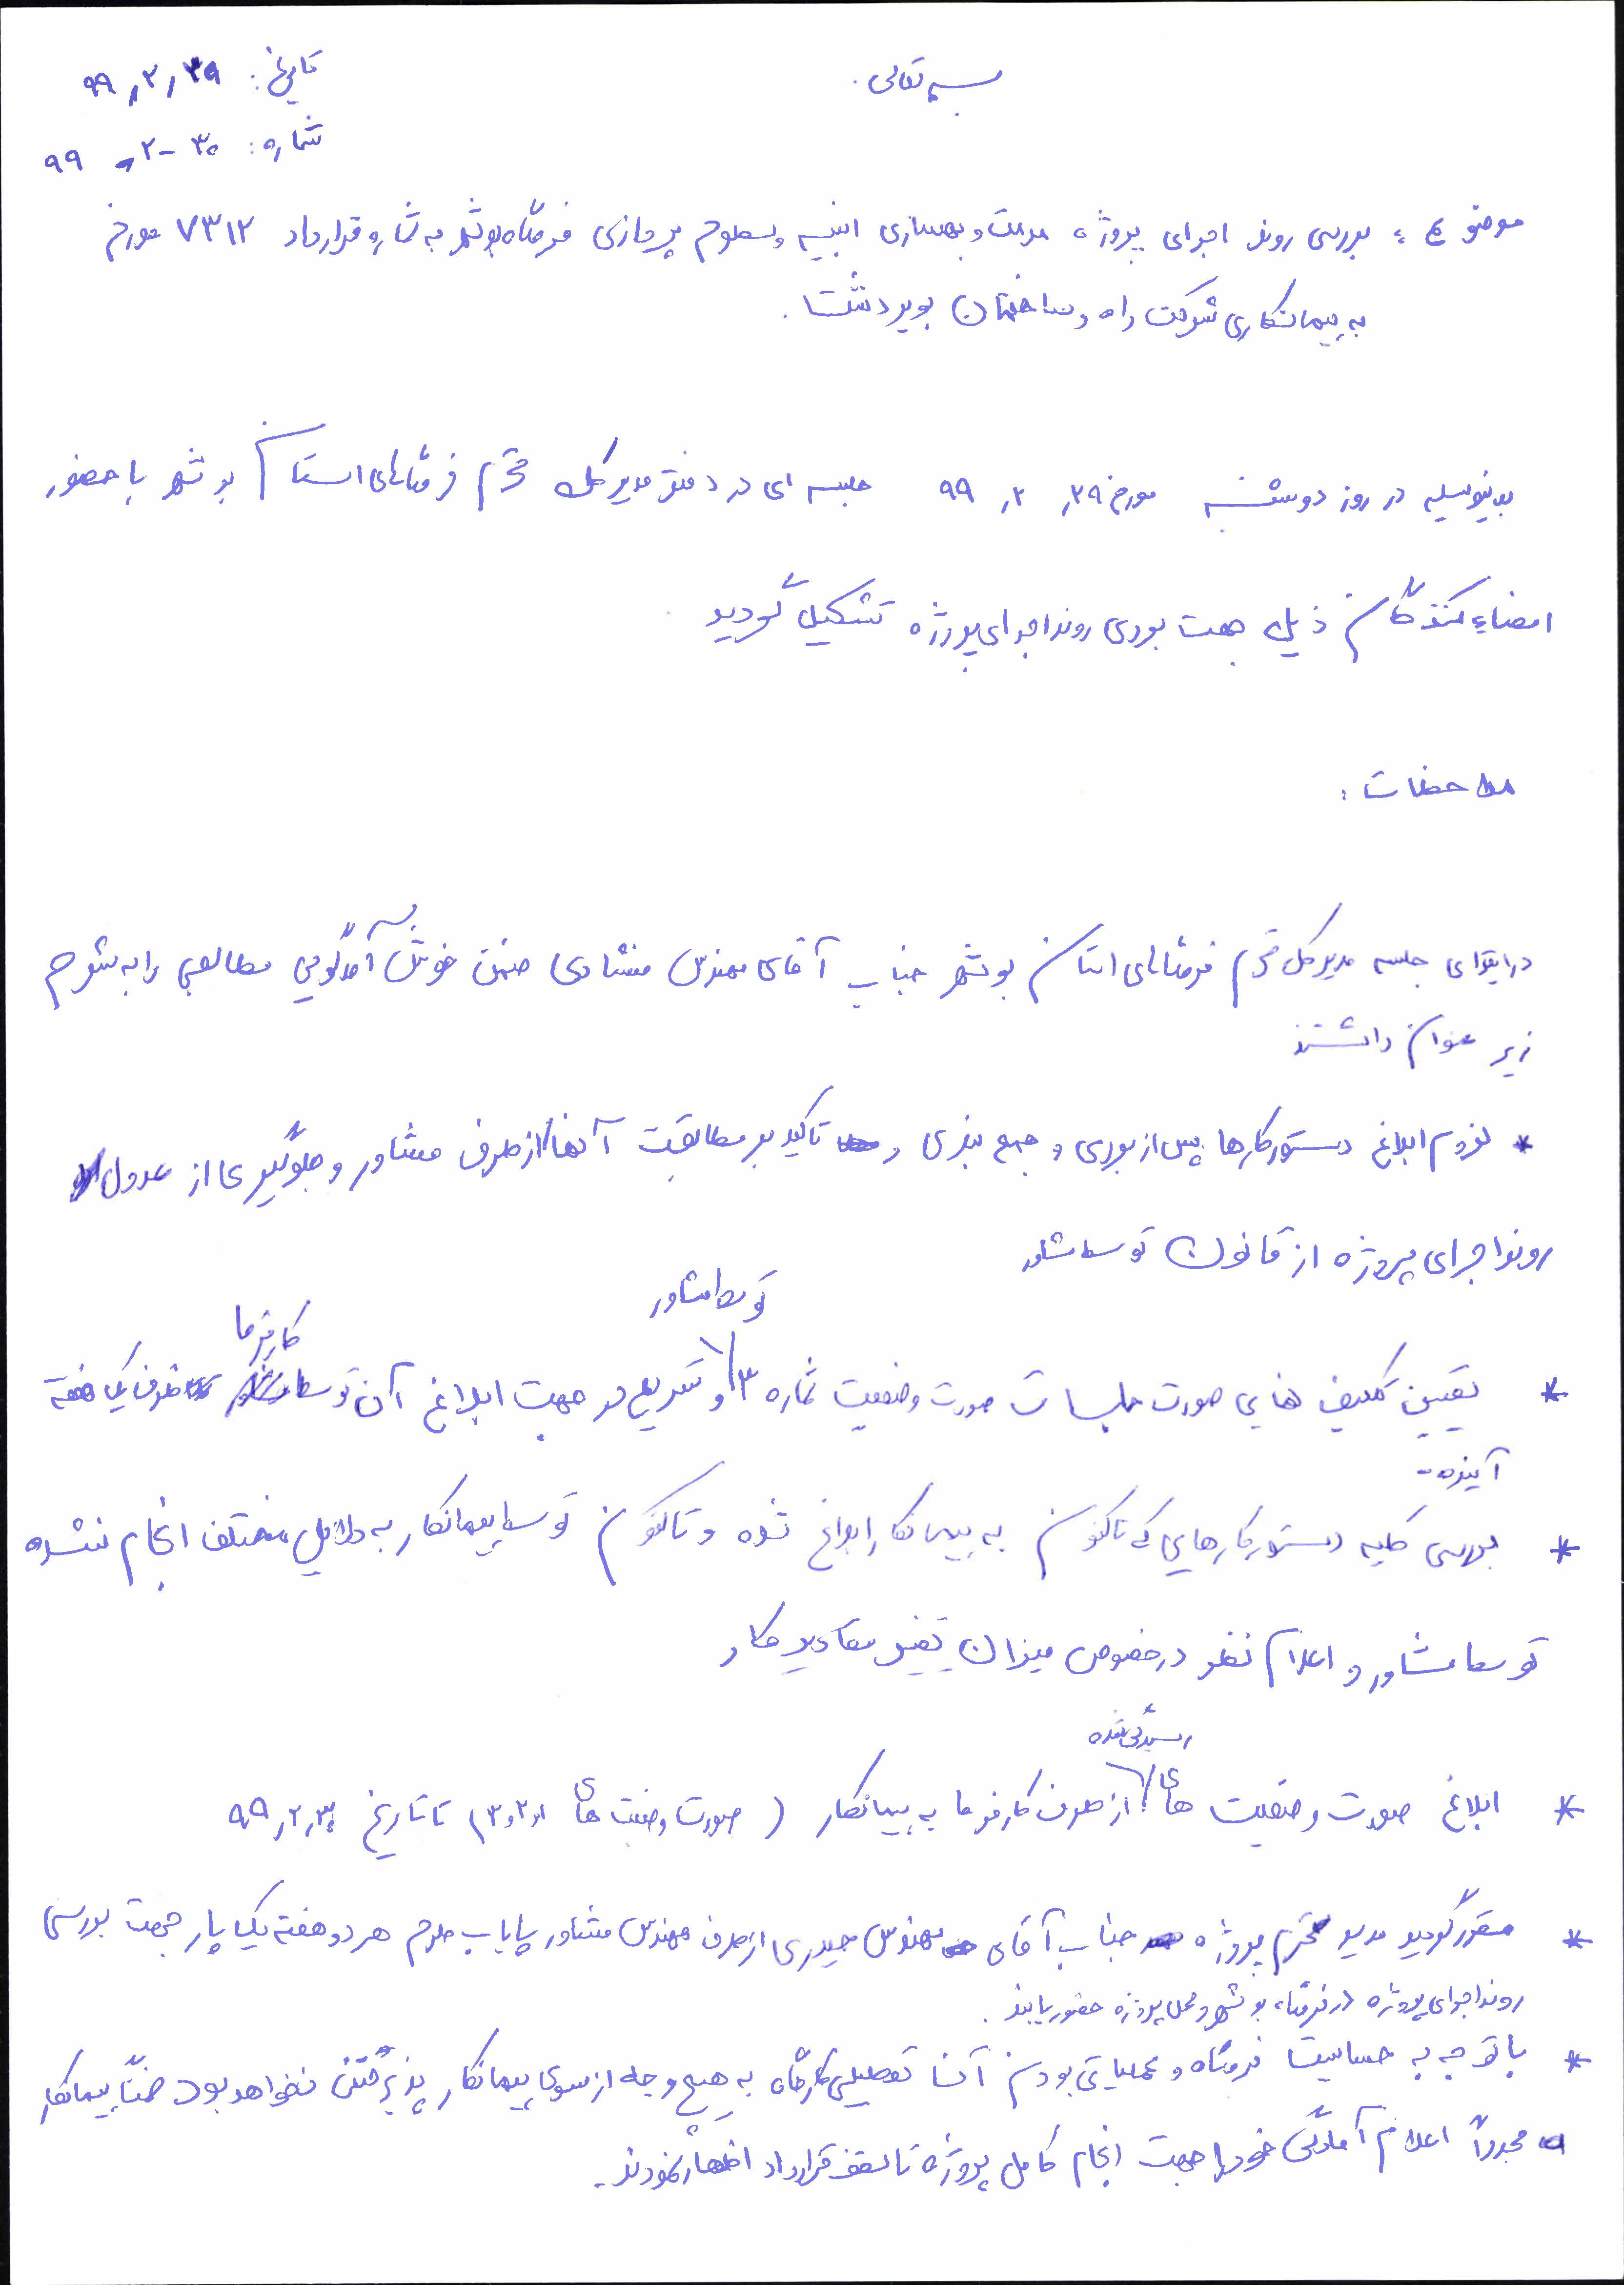 بسمه تعالی
تاریخ: ۹۹٫۲٫۲۹
شماره: ۳۰-۲-۹۹
موضوع: بررسی روند اجرای پروژه مرمت و بهسازی ابنیه و سطوح پروازی فرودگاه بوشهر به شماره قرارداد ۷۳۱۲ مورخ
به پیمانکاری شرکت راه و ساختمان بویر دشت.
بدینوسیله در روز دوشنبه مورخ ۹۹٫۲٫۲۹ جلسه ای در دفتر مدیر کل محترم فرودگاههای استان بوشهر با حضور
امضاء کنندگان ذیل جهت بررسی روند اجرای پروژه تشکیل گردید
ملاحظات:
در ابتدای جلسه مدیر کل محترم فرودگاههای استان بوشهر جناب آقای مهندس ضمن خوش آمدگویی مطالبی را به شرح
زیر عنوان داشتند
* لزوم ابلاغ دستور کارها پس از بررسی و جمع بندی و تاکید بر مطابقت آنها از طرف مشاور و جلوگیری از عدول
روند اجرای پروژه از قانون توسط مشاور
* تعیین تکلیف های صورت جلسات صورت وضعیت شماره ۳ توسط مشاور و تسریع در جهت ابلاغ آن توسط کارفرما ظرف یک هفته
آینده-
* بررسی کلیه دستور کارهایی که تاکنون به پیمانکار ابلاغ شده و تاکنون توسط پیمانکار به دلایل مختلف انجام نشده
توسط مشاور و اعلام نظر در خصوص میزان تغییر مقادیر کار
* ابلاغ صورت وضعیت های رسیدگی شده از طرف کارفرما به پیمانکار (صورت وضعیت های ۱و۲و۳) تا تاریخ ۹۹٫۲٫۳۰
* مقرر گردید مدیر محترم پروژه جناب آقای مهندس حیدری از طرف مهندس مشاور پایاب طرح هر دو هفته یک بار جهت بررسی
روند اجرای پروژه در فرودگاه بوشهر و محل پروژه حضور یابند.
* با توجه به حساسیت فرودگاه و عملیاتی بودن آن تعطیلی کارگاه به هیچ وجه از سوی پیمانکار پذیرفتنی نخواهد بود ضمناً پیمانکار
مجدداً اعلام آمادگی خود را جهت انجام کامل پروژه تا سقف قرارداد اظهار نمودند.